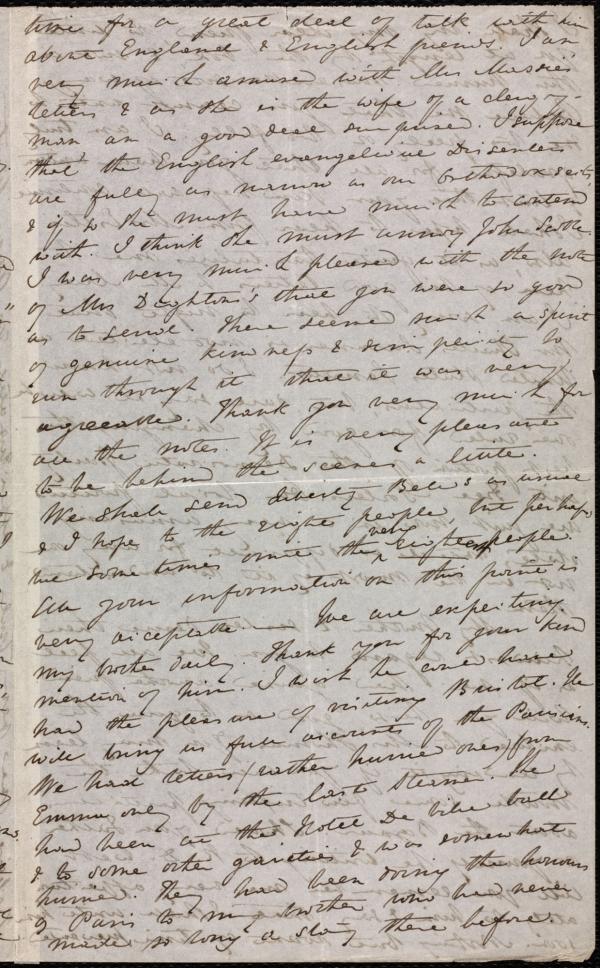 time for a great deal of talk with him
about England & English friends. I am
very much amused with Mrs Massie's
letters & as she is the wife of a clergy-
man am a good deal surprised. I suppose
that the English evangelical Dissenters
are fully as narrow as our Orthodox sects,
& if so she must have much to contend
with. I think she must annoy John Scoble.
I was very much pleased with the note
of Mrs Deighton's that you were so good
as to send. There seemed such a spirit
of genuine kindness & simplicity to
run through it that it was very
agreeable. Thank you very much for
all the notes. It is very pleasant
to be behind the scenes a little.
We shall send Liberty Bells as usual
& I hope to the right people but perhaps
we sometimes omit the very rightest people.
All your information on this point is
very acceptable. — We are expecting
my brother daily. Thank you for your kind
mention of him. I wish he could have
had the pleasure of visiting Bristol. He
will bring us full accounts of the Parisians.
We had letters (rather hurried ones) from
Emma only by the last Steamer. She
had been at the Hotel De Ville ball
& to some other gaieties & was somewhat
hurried. They had been doing the honours
of Paris to my brother who had never
made so long a stay there before.